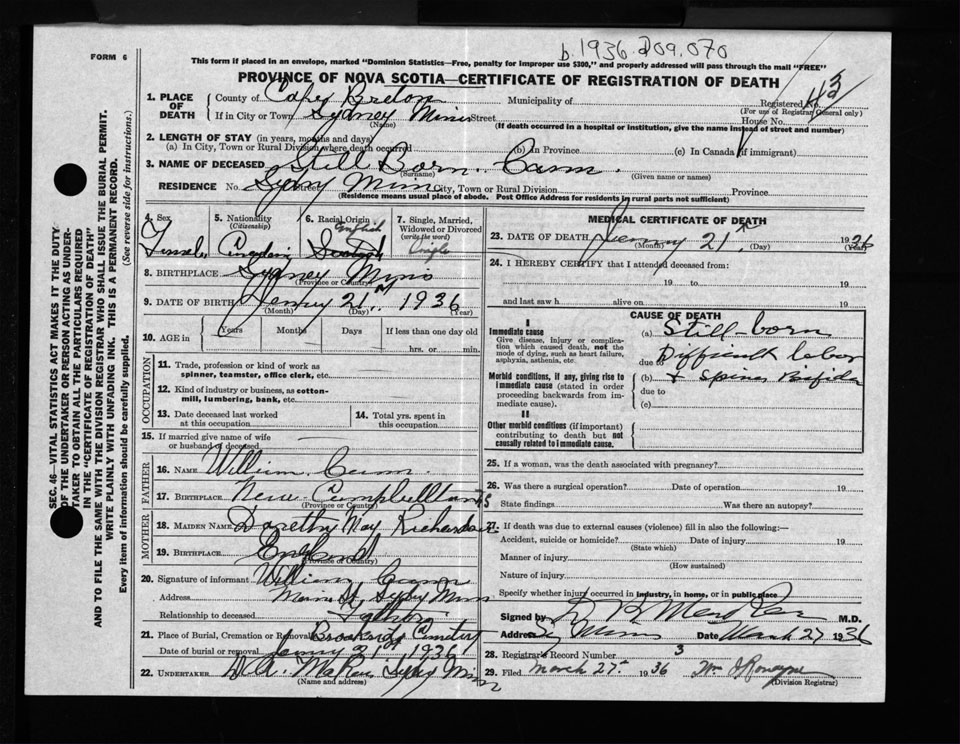 b. 1936.209.070
FORM 6
This form if placed in an envelope, marked "Dominion Statistics—Free, penalty for improper use $300," and properly addressed will pass through the mail "FREE"
PROVINCE OF NOVA SCOTIA—CERTIFICATE OF REGISTRATION OF DEATH
1. PLACE OF DEATH
County of Cape Breton Municipality of Registered No.
(For use of Registrar General only)
If in City or Town Sydney Mines Street House No.
(Name) (If death occurred in a hospital or institution, give the name instead of street and number)
2. LENGTH OF STAY (in years, months and days)
(a) In City, Town or Rural Division where death occurred (b) In Province (c) In Canada (if immigrant)
3. NAME OF DECEASED Still Born Cann
(Surname) (Given name or names)
RESIDENCE No. Sydney Mines City, Town or Rural Division Province
(Residence means usual place of abode. Post Office Address for residents in rural parts not sufficient)
4. Sex
Female
5. Nationality
(Citizenship)
Canadian
6. Racial Origin
English
Scotch
7. Single, Married, Widowed or Divorced
(write the word)
Single
8. BIRTHPLACE Sydney Mines
(Province or Country)
9. DATE OF BIRTH January 21st 1936
(Month) (Day) (Year)
10. AGE in
Years Months Days If less than one day old
hrs. or min.
OCCUPATION
11. Trade, profession or kind of work as spinner, teamster, office clerk, etc.
12. Kind of industry or business, as cotton-mill, lumbering, bank, etc.
13. Date deceased last worked at this occupation
14. Total yrs. spent in this occupation
15. If married give name of wife or husband of deceased
FATHER
16. NAME William Cann
17. BIRTHPLACE New Campbellton N S
(Province or Country)
MOTHER
18. MAIDEN NAME Dorethy May Richardson
19. BIRTHPLACE England
(Province or Country)
20. Signature of informant William Cann
Address Main St. Sydney Mines
Relationship to deceased Father
21. Place of Burial, Cremation or Removal Brookside Cemetery
Date of burial or removal January 21st 1936
22. UNDERTAKER Sydney Mines
(Name and address)
MEDICAL CERTIFICATE OF DEATH
23. DATE OF DEATH January 21st 1936
(Month) (Day) (Year)
24. I HEREBY CERTIFY that I attended deceased from:
19 to 19
and last saw h alive on 19
CAUSE OF DEATH
I
Immediate cause
Give disease, injury or complication which caused death, not the mode of dying, such as heart failure, asphyxia, asthenia, etc.
(a) Still-born
due to Difficult labor
Morbid conditions, if any, giving rise to immediate cause (stated in order proceeding backwards from immediate cause).
(b) & Spina Bifida
due to
(c)
II
Other morbid conditions (if important) contributing to death but not causally related to immediate cause.
25. If a woman, was the death associated with pregnancy?
26. Was there a surgical operation? Date of operation 19
State findings Was there an autopsy?
27. If death was due to external causes (violence) fill in also the following:—
Accident, suicide or homicide? Date of injury 19
(State which)
Manner of injury
(How sustained)
Nature of injury
Specify whether injury occurred in industry, in home, or in public place
Signed by M.D.
Address Sy Mines Date March 27 1936
28. Registrar's Record Number 3
29. Filed March 27th 1936
(Division Registrar)
SEC. 46—VITAL STATISTICS ACT MAKES IT THE DUTY OF THE UNDERTAKER OR PERSON ACTING AS UNDERTAKER TO OBTAIN ALL THE PARTICULARS REQUIRED IN THE "CERTIFICATE OF REGISTRATION OF DEATH"
AND TO FILE THE SAME WITH THE DIVISION REGISTRAR WHO SHALL ISSUE THE BURIAL PERMIT.
WRITE PLAINLY WITH UNFADING INK. THIS IS A PERMANENT RECORD.
Every item of information should be carefully supplied. (See reverse side for instructions.)